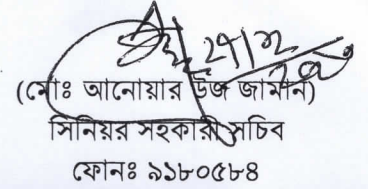 (মোঃ আনোয়ার উজ জামান)
সিনিয়র সহকারী সচিব
ফোনঃ ৯১৮০৫৮৪